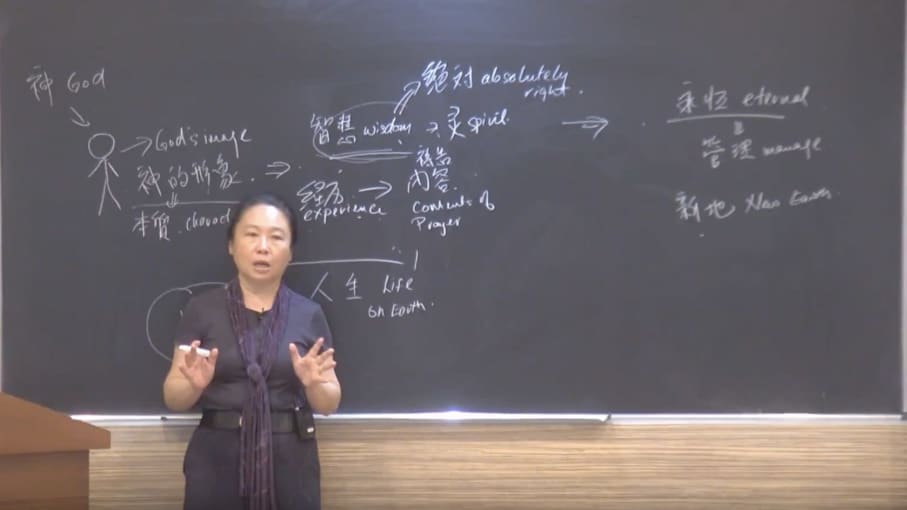 神 God
God's image
神的形象
本質 charact
智慧 wisdom → 灵 spirit
絕对 absolutely
right.
经历
experience
祷告
内容
Contents of
Prayer
人生 Life
on Earth.
永恒 eternal
管理 manage
新地 New Earth